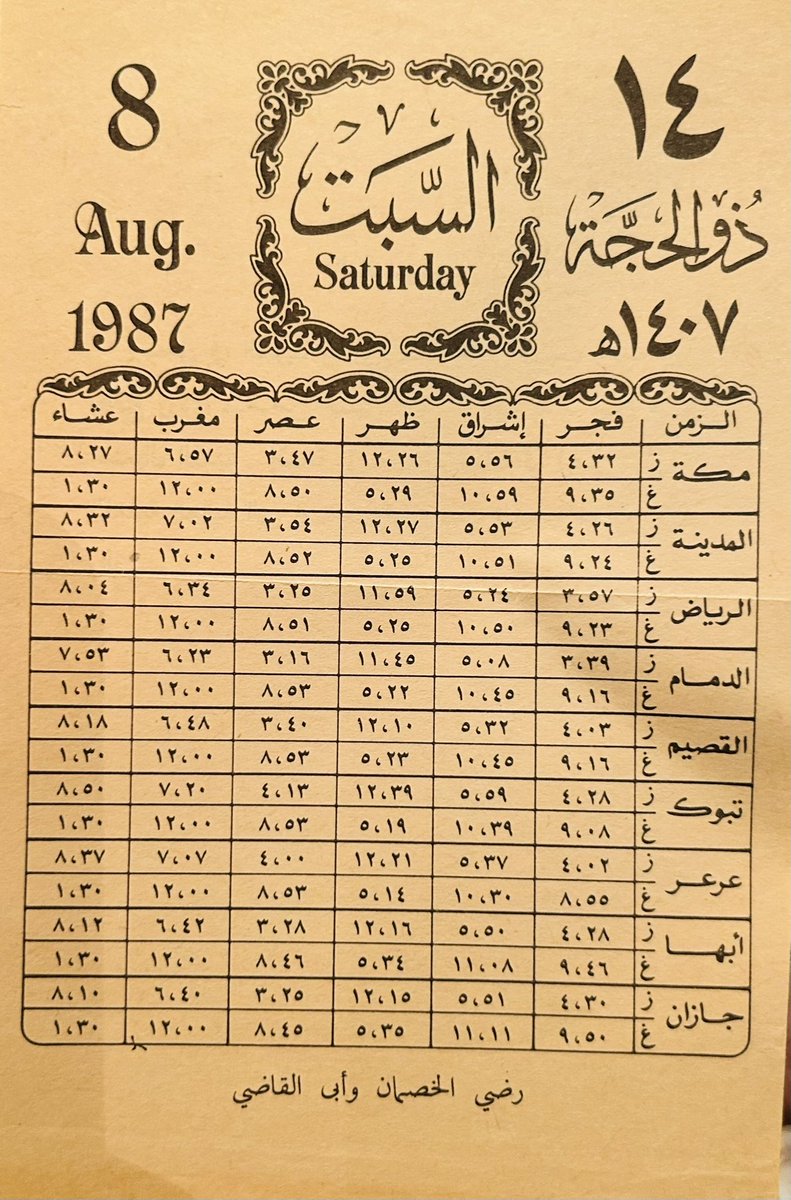 ١٤ السَّبَت 8
ذُو الحجَّة Saturday Aug.
١٤٠٧هـ 1987
الزمن فجر إشراق ظهر عصر مغرب عشاء
مكة ز ٤،٣٢ ٥،٥٦ ١٢،٢٦ ٣،٤٧ ٦،٥٧ ٨،٢٧
غ ٩،٣٥ ١٠،٥٩ ٥،٢٩ ٨،٥٠ ١٢،٠٠ ١،٣٠
المدينة ز ٤،٢٦ ٥،٥٣ ١٢،٢٧ ٣،٥٤ ٧،٠٢ ٨،٣٢
غ ٩،٢٤ ١٠،٥١ ٥،٢٥ ٨،٥٢ ١٢،٠٠ ١،٣٠
الرياض ز ٣،٥٧ ٥،٢٤ ١١،٥٩ ٣،٢٥ ٦،٣٤ ٨،٠٤
غ ٩،٢٣ ١٠،٥٠ ٥،٢٥ ٨،٥١ ١٢،٠٠ ١،٣٠
الدمام ز ٣،٣٩ ٥،٠٨ ١١،٤٥ ٣،١٦ ٦،٢٣ ٧،٥٣
غ ٩،١٦ ١٠،٤٥ ٥،٢٢ ٨،٥٣ ١٢،٠٠ ١،٣٠
القصيم ز ٤،٠٣ ٥،٣٢ ١٢،١٠ ٣،٤٠ ٦،٤٨ ٨،١٨
غ ٩،١٦ ١٠،٤٥ ٥،٢٣ ٨،٥٣ ١٢،٠٠ ١،٣٠
تبوك ز ٤،٢٨ ٥،٥٩ ١٢،٣٩ ٤،١٣ ٧،٢٠ ٨،٥٠
غ ٩،٠٨ ١٠،٣٩ ٥،١٩ ٨،٥٣ ١٢،٠٠ ١،٣٠
عرعر ز ٤،٠٢ ٥،٣٧ ١٢،٢١ ٤،٠٠ ٧،٠٧ ٨،٣٧
غ ٨،٥٥ ١٠،٣٠ ٥،١٤ ٨،٥٣ ١٢،٠٠ ١،٣٠
أبها ز ٤،٢٨ ٥،٥٠ ١٢،١٦ ٣،٢٨ ٦،٤٢ ٨،١٢
غ ٩،٤٦ ١١،٠٨ ٥،٣٤ ٨،٤٦ ١٢،٠٠ ١،٣٠
جازان ز ٤،٣٠ ٥،٥١ ١٢،١٥ ٣،٢٥ ٦،٤٠ ٨،١٠
غ ٩،٥٠ ١١،١١ ٥،٣٥ ٨،٤٥ ١٢،٠٠ ١،٣٠
رضي الخصمان وأبى القاضي